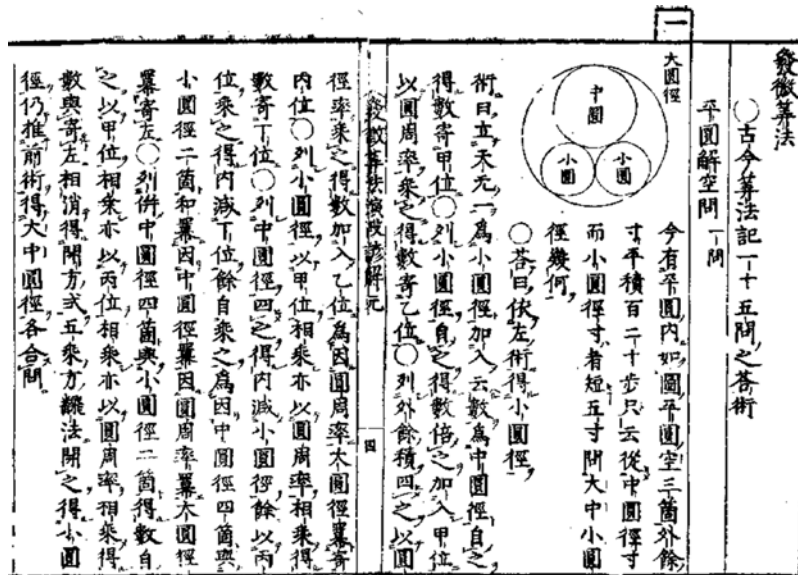 一
發微筭法
○古今筭法記一十五問之答術
平圓解空問 一問
大圓徑
中圓
小圓
小圓
今有平圓內如圖平圓空三箇外餘
寸平積百二十步只云從中圓徑寸
而小圓徑寸者短五寸問大中小圓
徑幾何
○答曰依左術得小圓徑
術曰立天元一爲小圓徑加入云數爲中圓徑自之
得數寄甲位○列小圓徑自之得數倍之加入甲位
以圓周率乘之得數寄乙位○列外餘積四之以圓
發微筭法演段諺解元
四
徑率乘之得數加入乙位爲因圓周率大圓徑冪寄
丙位○列小圓徑以甲位相乘亦以圓周率相乘得
數寄丁位○列中圓徑四之得內減小圓徑餘以丙
位乘之得內減丁位餘自乘之爲因中圓徑四箇與
小圓徑二箇和冪因中圓徑冪因圓周率冪大圓徑
冪寄左○列併中圓徑四箇與小圓徑二箇得數自
之以甲位相乘亦以丙位相乘亦以圓周率相乘得
數與寄左相消得開方式五乘方飜法開之得小圓
徑仍推前術得大中圓徑各合問